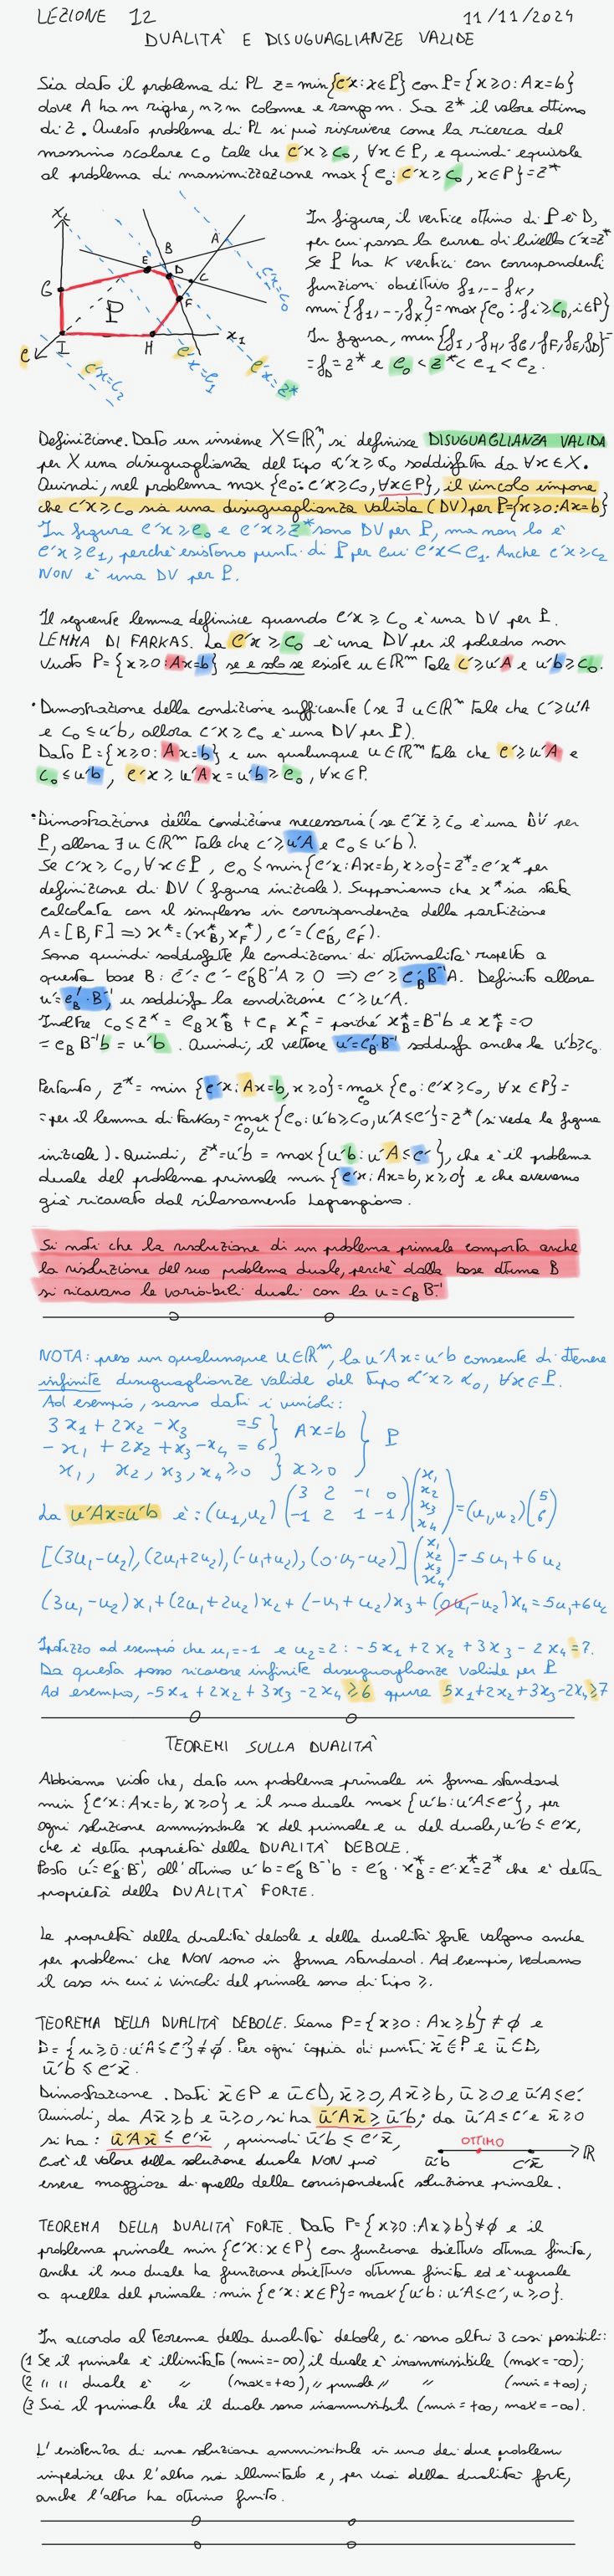 LEZIONE 12 11/11/2024
DUALITÀ E DISUGUAGLIANZE VALIDE
Sia dato il problema di PL z=min{c'x:x∈P} con P={x≥0:Ax=b}
dove A ha m righe, n≥m colonne e rango m. Sia z* il valore ottimo
di z. Questo problema di PL si può riscrivere come la ricerca del
massimo scalare c₀ tale che c'x≥c₀, ∀x∈P, e quindi equivale
al problema di massimizzazione max{c₀:c'x≥c₀,x∈P}=z*
x₂
E
B
A
D
C
G
P
F
I
H
x₁
c
c'x=c₀
c'x=c₂
c'x=c₁
c'x=z*
In figura, il vertice ottimo di P è D,
per cui passa la curva di livello c'x=z*
Se P ha K vertici con corrispondenti
funzioni obiettivo f₁,--fₖ,
min{f₁,--,fₖ}=max{c₀:fᵢ≥c₀,i∈P}
In figura, min{f_I,f_H,f_G,f_F,f_E,f_D}=
=f_D=z* e c₀<z*<c₁<c₂.
Definizione. Dato un insieme X⊆ℝⁿ, si definisce DISUGUAGLIANZA VALIDA
per X una disuguaglianza del tipo α'x≥α₀ soddisfatta da ∀x∈X.
Quindi, nel problema max{c₀:c'x≥c₀,∀x∈P}, il vincolo impone
che c'x≥c₀ sia una disuguaglianza valida (DV) per P={x≥0:Ax=b}
In figura c'x≥c₀ e c'x≥z* sono DV per P, ma non lo è
c'x≥c₁, perchè esistono punti di P per cui c'x<c₁. Anche c'x≥c₂
NON è una DV per P.
Il seguente lemma definisce quando c'x≥c₀ è una DV per P.
LEMMA DI FARKAS. La c'x≥c₀ è una DV per il poliedro non
vuoto P={x≥0:Ax=b} se e solo se esiste u∈ℝᵐ tale c'≥u'A e u'b≥c₀.
• Dimostrazione della condizione sufficiente (se ∃ u∈ℝᵐ tale che c'≥u'A
e c₀≤u'b, allora c'x≥c₀ è una DV per P).
Dato P={x≥0:Ax=b} e un qualunque u∈ℝᵐ tale che c'≥u'A e
c₀≤u'b, c'x≥u'Ax=u'b≥c₀,∀x∈P.
• Dimostrazione della condizione necessaria (se c'x≥c₀ è una DV per
P, allora ∃ u∈ℝᵐ tale che c'≥u'A e c₀≤u'b).
Se c'x≥c₀,∀x∈P, c₀≤min{c'x:Ax=b,x≥0}=z*=c'x* per
definizione di DV (figura iniziale). Supponiamo che x* sia stata
calcolata con il simplesso in corrispondenza della partizione
A=[B,F] ⟹ x*=(x*_B,x*_F), c'=(c'_B,c'_F).
Sono quindi soddisfatte le condizioni di ottimalità rispetto a
questa base B: c̄'=c'-c'_B B⁻¹A≥0 ⟹ c'≥c'_B B⁻¹A. Definito allora
u'=c'_B·B⁻¹, u soddisfa la condizione c'≥u'A.
Inoltre c₀≤z*=c_B x*_B+c_F x*_F= poichè x*_B=B⁻¹b e x*_F=0
=c_B B⁻¹b=u'b. Quindi, il vettore u'=c'_B B⁻¹ soddisfa anche la u'b≥c₀.
Pertanto, z*=min{c'x:Ax=b,x≥0}=max_{c₀}{c₀:c'x≥c₀,∀x∈P}=
=per il lemma di Farkas=max_{c₀,u}{c₀:u'b≥c₀,u'A≤c'}=z* (si veda la figura
iniziale). Quindi, z*=u'b=max{u'b:u'A≤c'}, che è il problema
duale del problema primale min{c'x:Ax=b,x≥0} e che avevamo
già ricavato dal rilassamento Lagrangiano.
Si noti che la risoluzione di un problema primale comporta anche
la risoluzione del suo problema duale, perchè dalla base ottima B
si ricavano le variabili duali con la u=c_B B⁻¹
NOTA: preso un qualunque u∈ℝᵐ, la u'Ax=u'b consente di ottenere
infinite disuguaglianze valide del tipo α'x≥α₀,∀x∈P.
Ad esempio, siano dati i vincoli:
3x₁+2x₂-x₃ =5 } Ax=b } P
-x₁+2x₂+x₃-x₄=6
x₁, x₂, x₃, x₄≥0 } x≥0
La u'Ax=u'b è: (u₁,u₂) (3 2 -1 0 / -1 2 1 -1) (x₁ x₂ x₃ x₄) = (u₁,u₂) (5 6)
[(3u₁-u₂),(2u₁+2u₂),(-u₁+u₂),(0·u₁-u₂)] (x₁ x₂ x₃ x₄) = 5u₁+6u₂
(3u₁-u₂)x₁+(2u₁+2u₂)x₂+(-u₁+u₂)x₃+(0u₁-u₂)x₄=5u₁+6u₂
Ipotizzo ad esempio che u₁=-1 e u₂=2: -5x₁+2x₂+3x₃-2x₄=7.
Da questa posso ricavare infinite disuguaglianze valide per P
Ad esempio, -5x₁+2x₂+3x₃-2x₄≥6 oppure 5x₁+2x₂+3x₃-2x₄≥7
TEOREMI SULLA DUALITÀ
Abbiamo visto che, dato un problema primale in forma standard
min{c'x:Ax=b,x≥0} e il suo duale max{u'b:u'A≤c'}, per
ogni soluzione ammissibile x del primale e u del duale, u'b≤c'x,
che è detta proprietà della DUALITÀ DEBOLE.
Posto u'=c'_B·B⁻¹, all'ottimo u'b=c'_B B⁻¹b=c'_B·x*_B=c'x*=z* che è detta
proprietà della DUALITÀ FORTE.
Le proprietà della dualità debole e della dualità forte valgono anche
per problemi che NON sono in forma standard. Ad esempio, vediamo
il caso in cui i vincoli del primale sono di tipo ≥.
TEOREMA DELLA DUALITÀ DEBOLE. Siano P={x≥0:Ax≥b}≠∅ e
D={u≥0:u'A≤c'}≠∅. Per ogni coppia di punti x̄∈P e ū∈D,
ū'b≤c'x̄.
Dimostrazione. Dati x̄∈P e ū∈D, x̄≥0, Ax̄≥b, ū≥0 e ū'A≤c'.
Quindi, da Ax̄≥b e ū≥0, si ha ū'Ax̄≥ū'b; da ū'A≤c' e x̄≥0
si ha: ū'Ax̄≤c'x̄, quindi ū'b≤c'x̄,
cioè il valore della soluzione duale NON può
essere maggiore di quello della corrispondente soluzione primale.
OTTIMO
ū'b
c'x̄
ℝ
TEOREMA DELLA DUALITÀ FORTE. Dato P={x≥0:Ax≥b}≠∅ e il
problema primale min{c'x:x∈P} con funzione obiettivo ottima finita,
anche il suo duale ha funzione obiettivo ottima finita ed è uguale
a quella del primale: min{c'x:x∈P}=max{u'b:u'A≤c',u≥0}.
In accordo al teorema della dualità debole, ci sono altri 3 casi possibili:
(1 Se il primale è illimitato (min=-∞), il duale è inammissibile (max=-∞);
(2 " " duale è " (max=+∞), " primale " " (min=+∞);
(3 Sia il primale che il duale sono inammissibili (min=+∞, max=-∞).
L'esistenza di una soluzione ammissibile in uno dei due problemi
impedisce che l'altro sia illimitato e, per via della dualità forte,
anche l'altro ha ottimo finito.